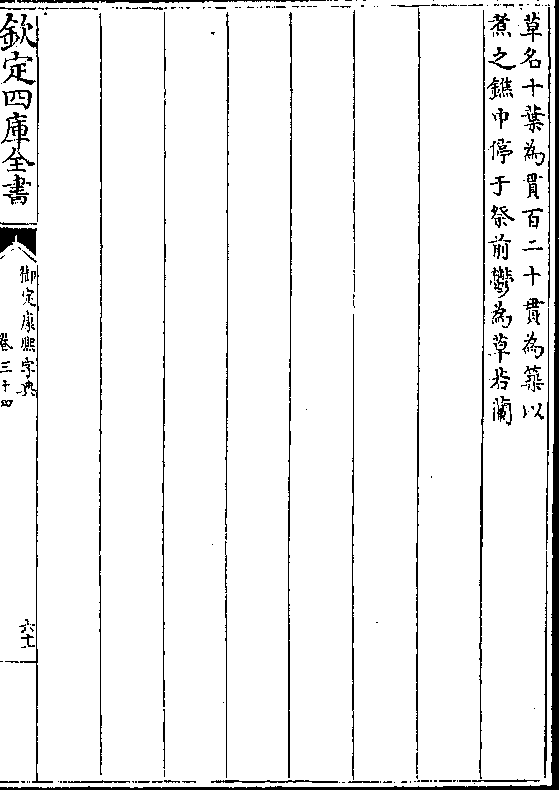 草名十葉為貫百二十貫為築以
煮之鐎中停于祭前鬱為草若蘭
欽定四庫全書
御定康熙字典
卷三十四
六十